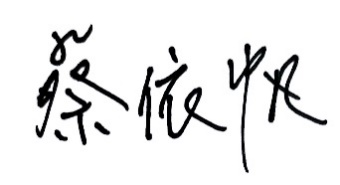 蔡依帆